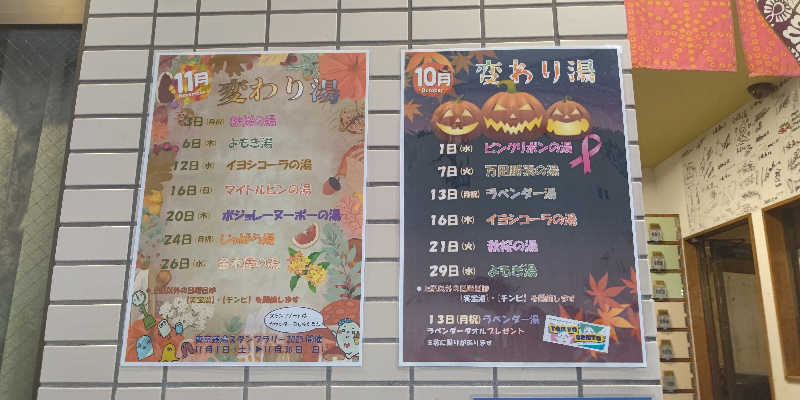 11月
変わり湯
3日(月祝) 秋桜の湯
6日(木) よもぎ湯
12日(水) イヨシコーラの湯
16日(日) マイトルビンの湯
20日(木) ボジョレーヌーボーの湯
24日(月祝) じっこう湯
26日(水)
【実宝湯】・【チンピ】を開催します
東京銭湯スタンプラリー2025開催
11月1日(土)▶11月30日(日)
10月
October
変わり湯
1日(水) ピンクリボンの湯
7日(火) 万田酵素の湯
13日(月祝) ラベンダー湯
16日(木) イヨシコーラの湯
21日(火) 秋桜の湯
29日(水) よもぎ湯
【実宝湯】・【チンピ】を開催します
13日(月祝)ラベンダー湯
ラベンダータオルプレゼント
※数に限りがあります
TOKYO
SENTO